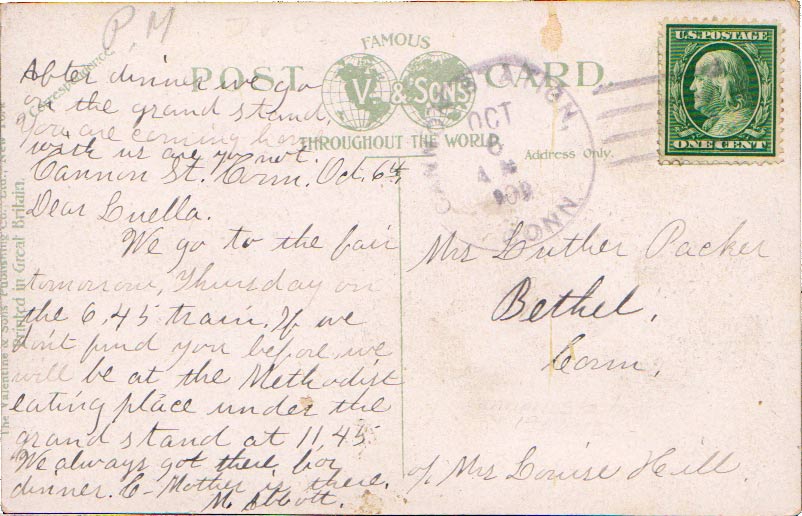 P.M
After dinner we go
on the grand stand,
You are coming home
with us are you not.
Cannon St. Conn. Oct. 6th,
Dear Luella.
We go to the fair
tomorrow, Thursday on
the 6,45 train. If we
don't find you before we
will be at the Methodist
eating place under the
grand stand at 11,45
We always got there for
dinner. C- Mother is there.
M. Abbott.
FAMOUS
POST CARD.
V. & SONS
THROUGHOUT THE WORLD
Correspondence
Address Only.
The Valentine & Sons Publishing Co., Ltd., New York
Printed in Great Britain.
CANNON STATION,
OCT
6
A M
1909
CONN
U.S. POSTAGE
ONE CENT
Mrs Luther Packer
Bethel,
Conn,
c/o Mrs Louise Hill.